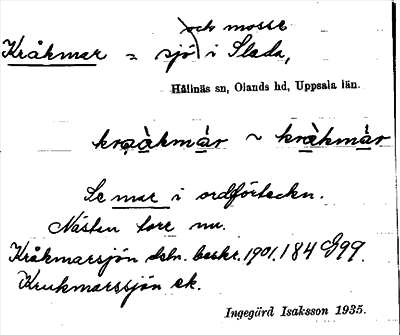 och mosse
Kråkmar = sjö i Slada,
Hållnäs sn, Olands hd, Uppsala län.
kråkmàr ~ kràkmàr
Se mar i ordförteckn.
Nästen torr nu.
Kråkmarsjön dsbr. beskr. 1901, 184 G99.
Krukmarssjön ek.
Ingegärd Isaksson 1935.